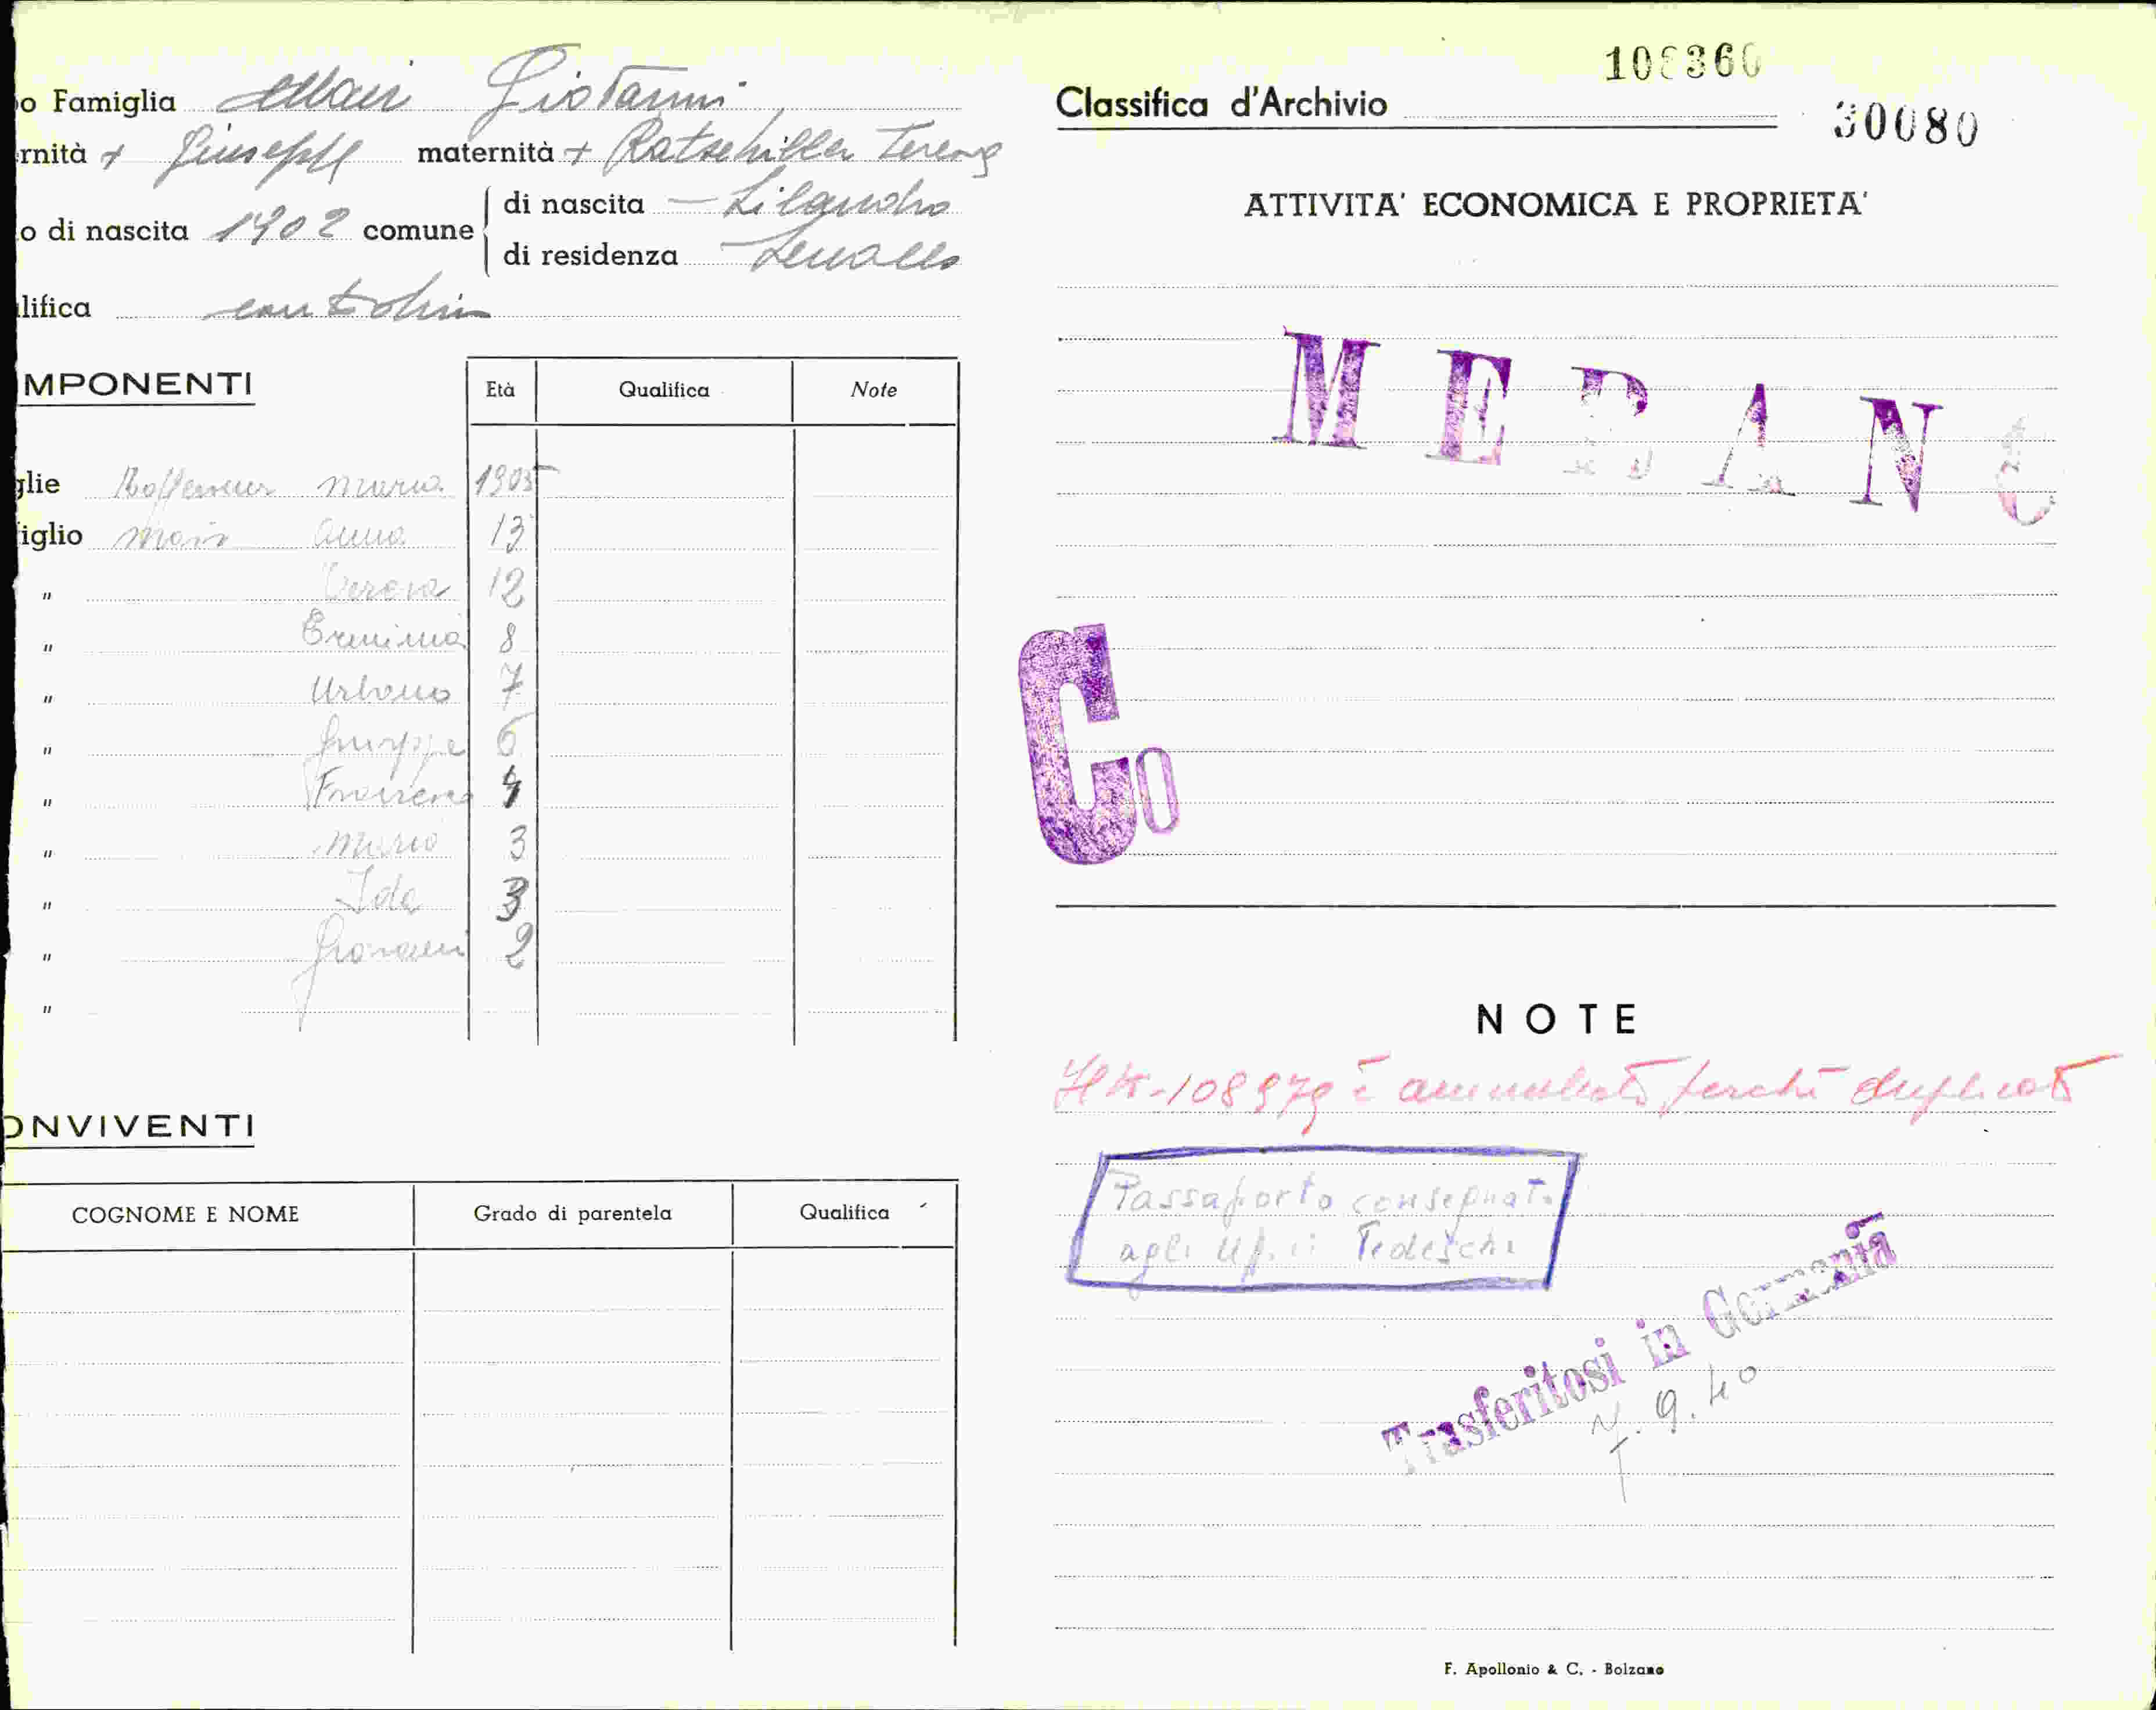 o Famiglia Mair Giovanni
rnità + Giuseppe maternità + Ratschiller Teresa
o di nascita 1902 comune di nascita - Silandro
di residenza
lifica
MPONENTI Età Qualifica Note
glie Maria 1905
iglio Mair Anna 13
" 12
" Erminia 8
" Urbano 7
" Giuseppe 6
" 4
" Mario 3
" Ida 3
" Giovanni 2
"
ONVIVENTI
COGNOME E NOME Grado di parentela Qualifica
Classifica d'Archivio
30080
ATTIVITA' ECONOMICA E PROPRIETA'
MERANO
Co
NOTE
è annullato perchè duplicato
Passaporto consegnato
agli Uff.ii Tedeschi
Trasferitosi in Germania
7.9.40
F. Apollonio & C. - Bolzano